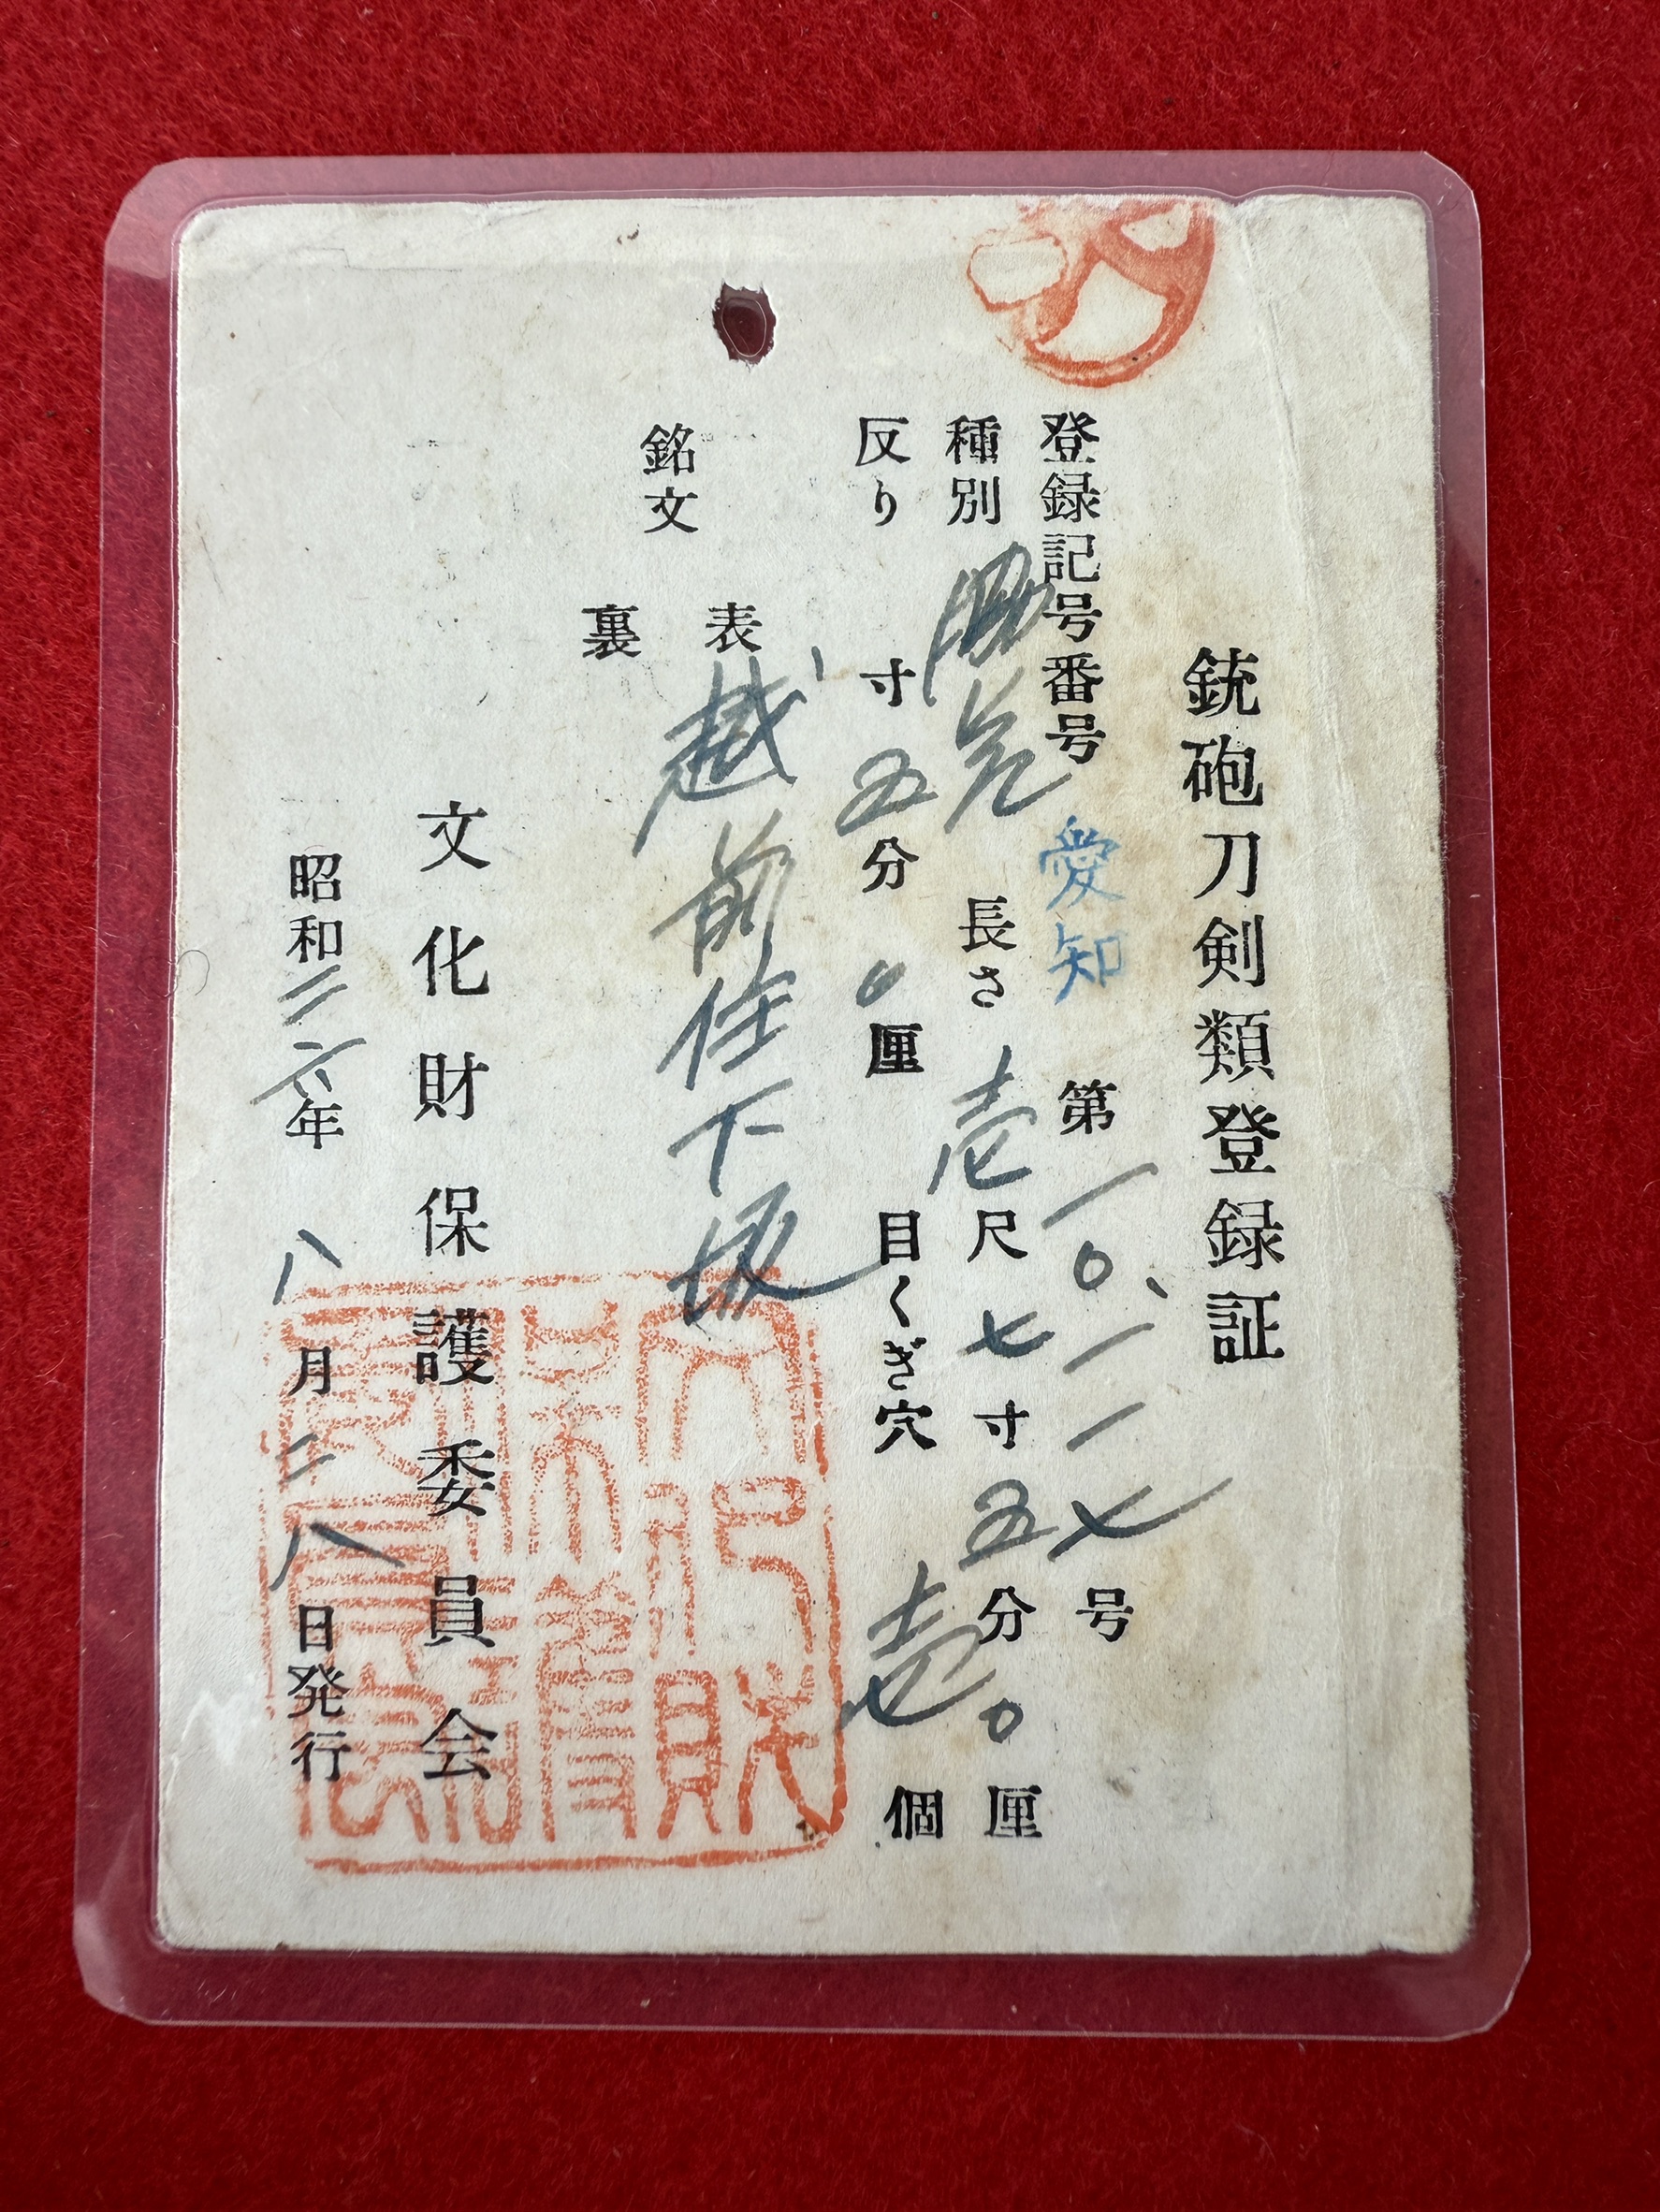 銃砲刀剣類登録証
登録記号番号 愛知 第一〇、一一七号
種別 脇差 長さ 壱尺七寸五分〇厘
反り 寸五分〇厘 目くぎ穴 壱個
銘文 表 越前住下坂
裏
文化財保護委員会
昭和二六年八月二八日発行